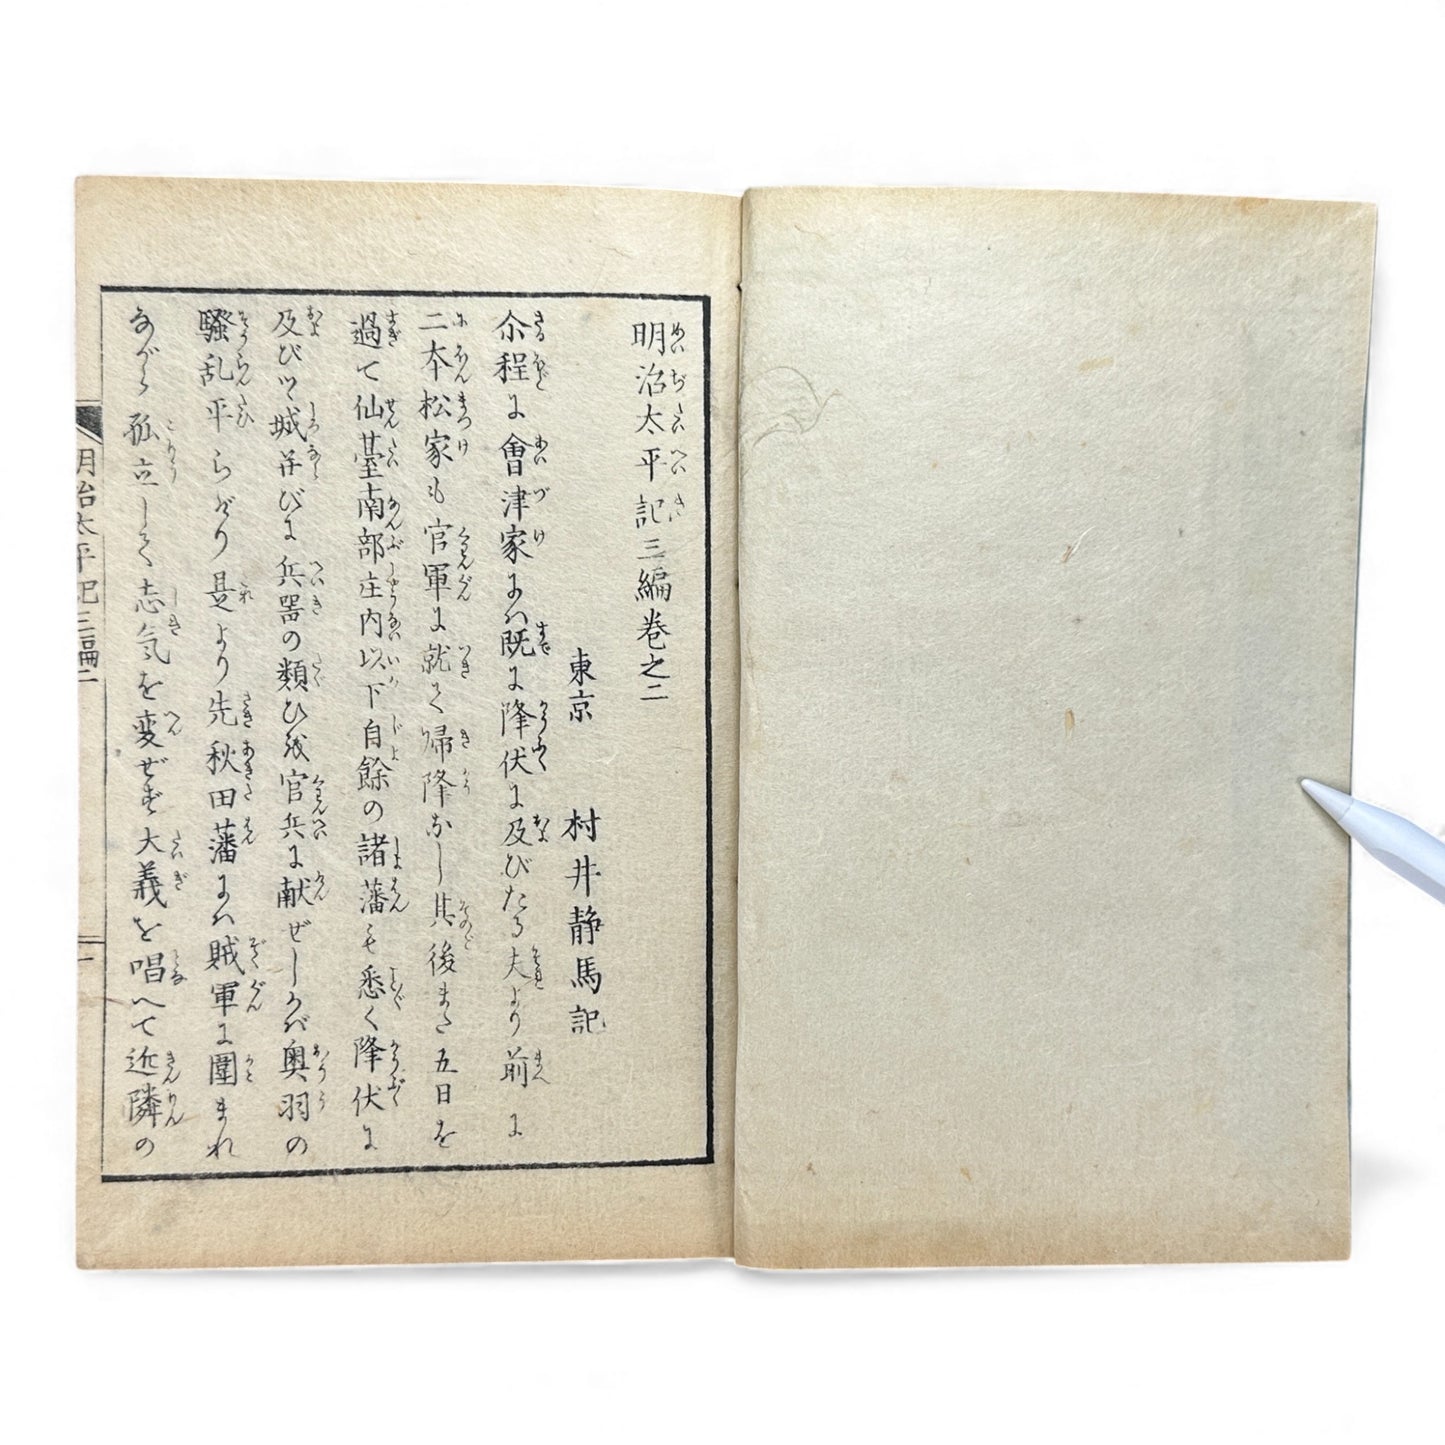 明治太平記三編巻之二
東京 村井静馬記
尒程に會津家にハ既に降伏に及びたる夫より前に
二本松家も官軍に就て帰降なし其後また五日を
過て仙臺南部庄内以下自餘の諸藩も悉く降伏に
及びツヽ城并びに兵器の類ひを官兵に献ぜしかバ奥羽の
騒乱平らぎけり是より先秋田藩にハ賊軍に圍まれ
ながら孤立して志気を変ぜず大義を唱へて近隣の
明治太平記三編二
一